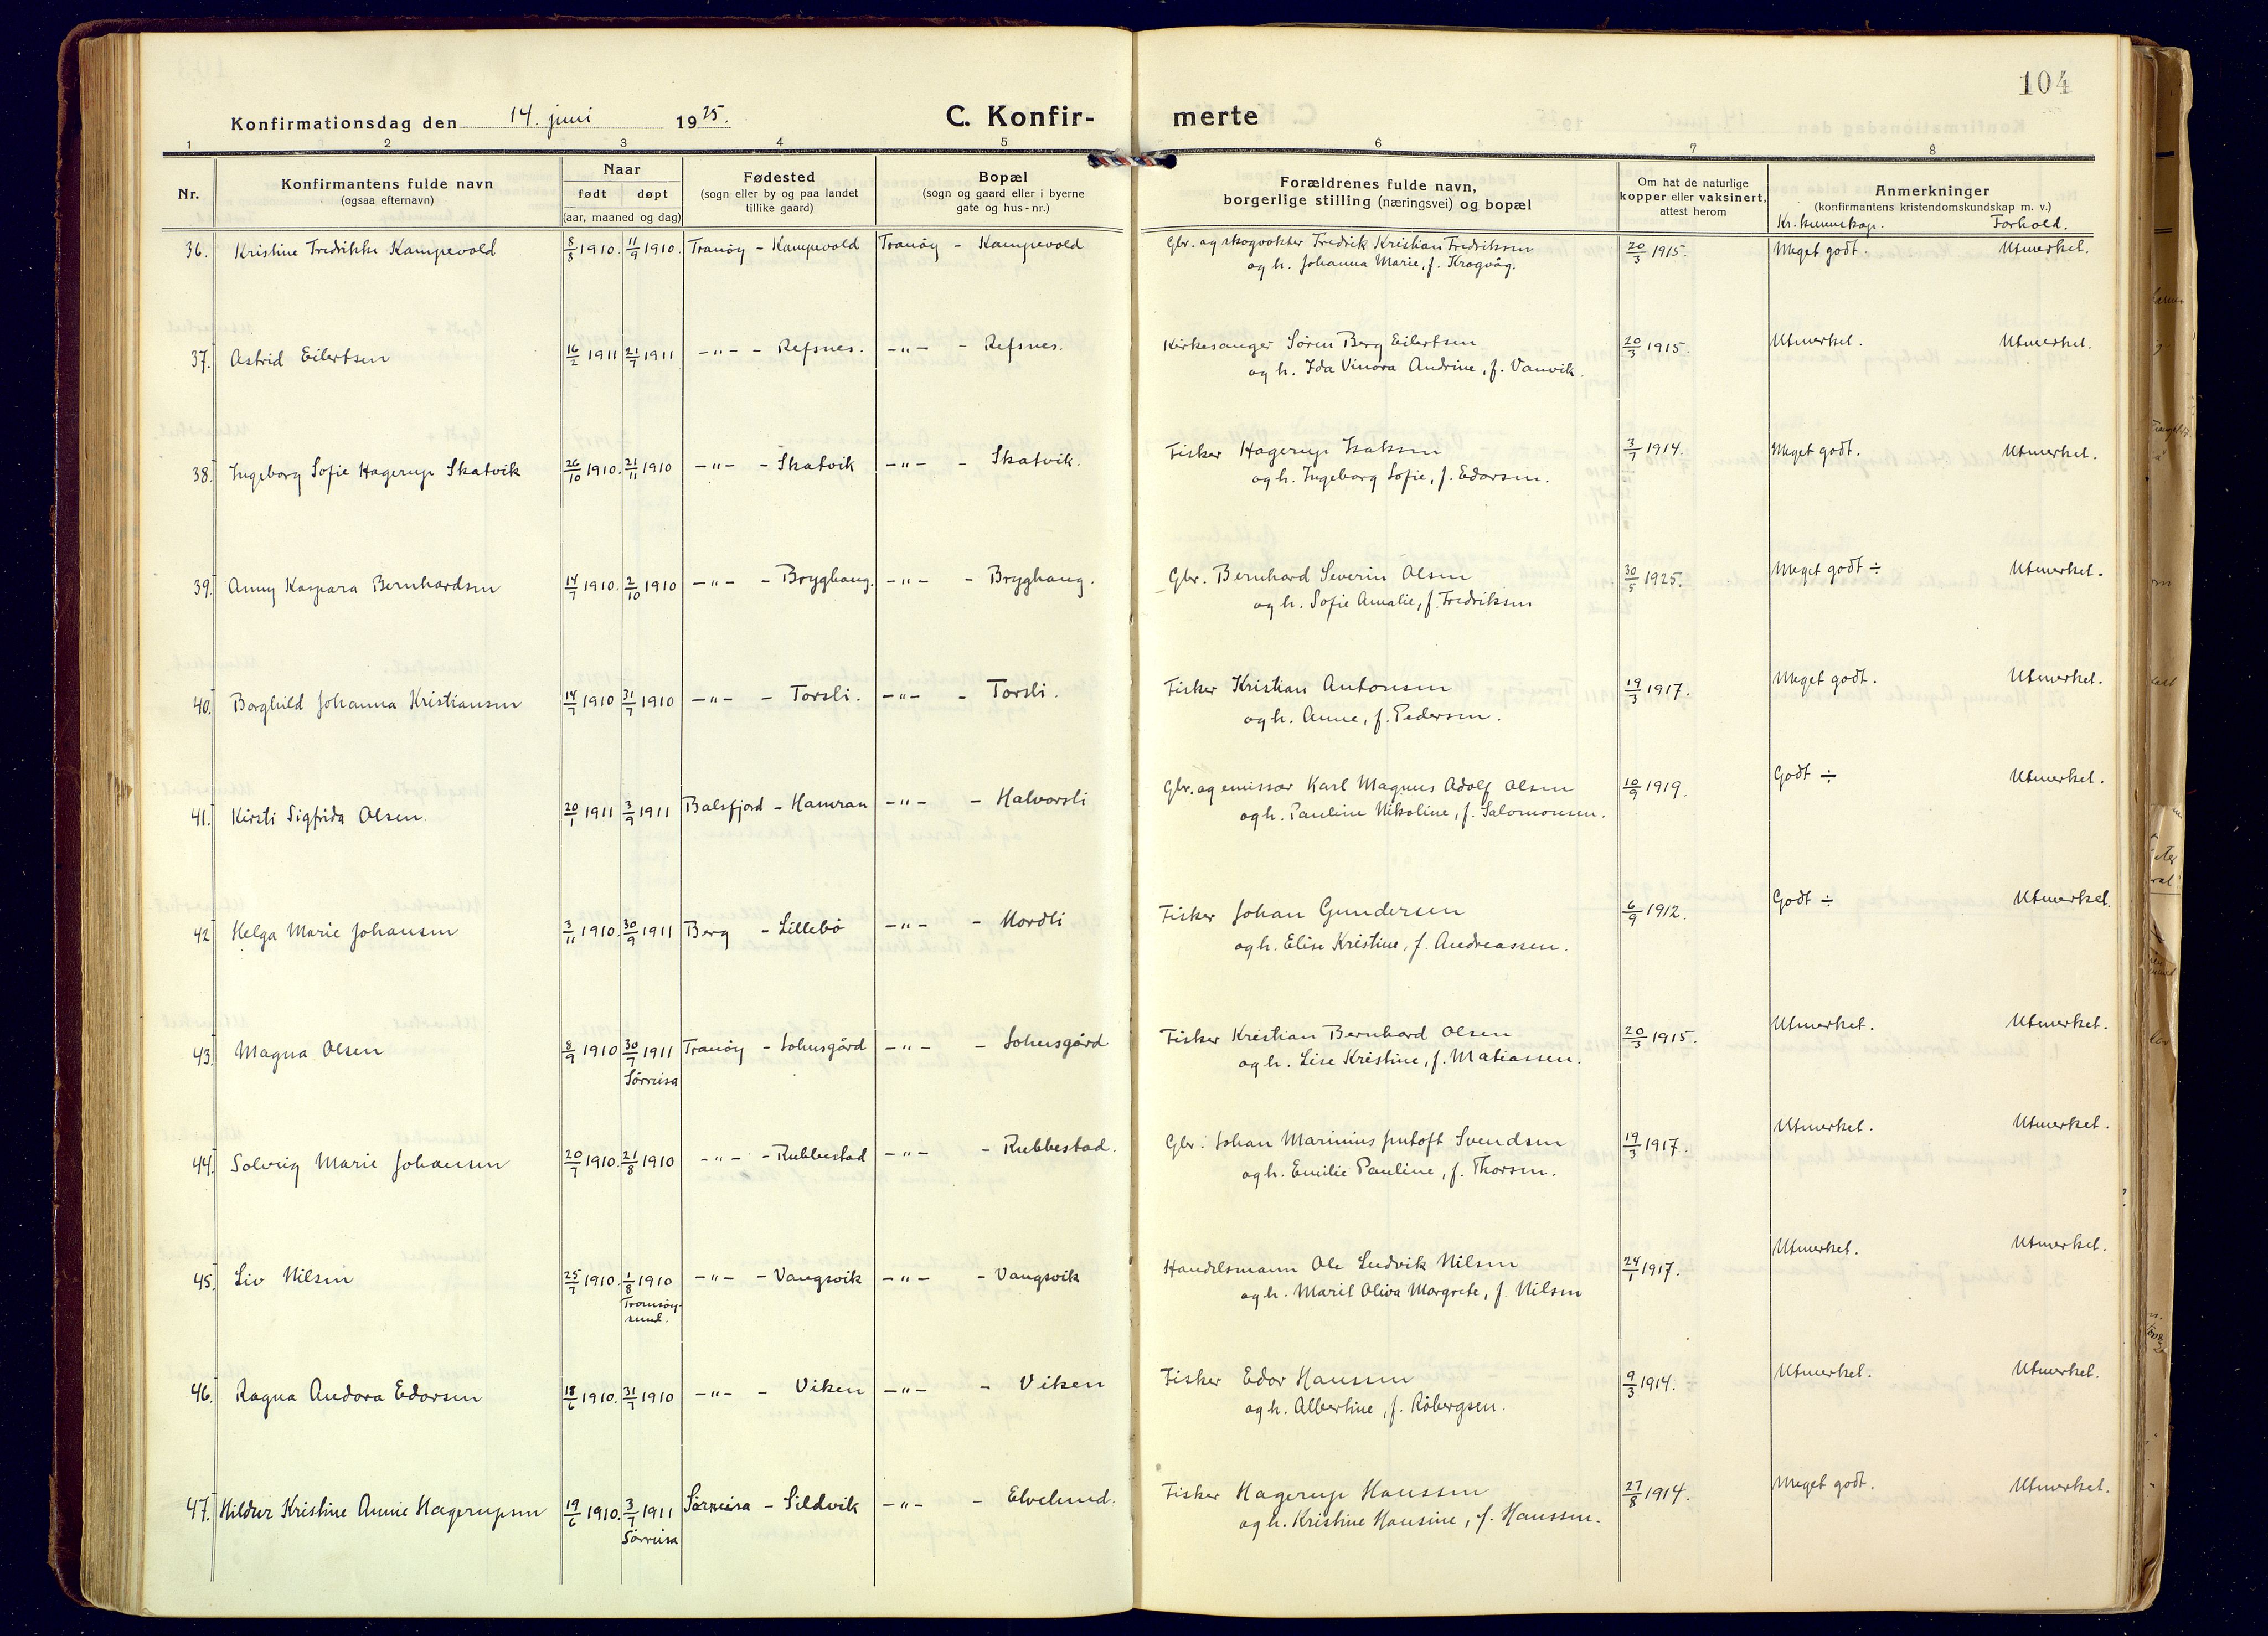 104
Konfirmationsdag den 14. juni 1925.
C. Konfir- merte
1 2 3 4 5 6 7 8
Nr.
Konfirmantens fulde navn
(ogsaa efternavn)
Naar
født døpt
(aar, maaned og dag)
Fødested
(sogn eller by og paa landet
tillike gaard)
Bopæl
(sogn og gaard eller i byerne
gate og hus-nr.)
Forældrenes fulde navn,
borgerlige stilling (næringsvei) og bopæl
Om hat de naturlige
kopper eller vaksinert,
attest herom
Anmerkninger
(konfirmantens kristendomskundskap m. v.)
Kr. kunnskap. Forhold.
36. Kristine Fredrikke Kampevold 8/8 1910. 11/9 1910. Tranöy - Kampevold Tranöy - Kampevold Gbr. og skogvokter Fredrik Kristian Fredriksen 20/3 1915. Meget godt. Utmerket.
og h. Johanna Marie, f. Krogvåg.
37. Astrid Eilertsen 16/2 1911 21/7 1911 -"- - Refsnes. -"- - Refsnes. Kirkesanger Sören Berg Eilertsen 20/3 1915. Utmerket. Utmerket.
og h. Ida Vinora Andrine, f. Vanvik.
38. Ingeborg Sofie Hagerup Skatvik 26/10 1910. 21/11 1910 -"- - Skatvik -"- - Skatvik. Fisker Hagerup Isaksen 3/7 1914. Meget godt. Utmerket.
og h. Ingeborg Sofie, f. Edorsen.
39. Anny Kaspara Bernhardsen 14/7 1910. 2/10 1910 -"- - Brygghaug. -"- - Brygghaug. Gbr. Bernhard Severin Olsen 30/5 1925. Meget godt ÷ Utmerket.
og h. Sofie Amalie, f. Fredriksen
40. Borghild Johanna Kristiansen 14/7 1910 31/7 1910 -"- - Torsli. -"- - Torsli. Fisker Kristian Antonsen 19/3 1917. Meget godt. Utmerket.
og h. Anne, f. Pedersen.
41. Kirsti Sigfrida Olsen. 20/1 1911 3/9 1911 Balsfjord - Hamran -"- - Halvorsli Gbr. og emissær Karl Magnus Adolf Olsen 10/9 1919. Godt ÷ Utmerket.
og h. Pauline Nikoline, f. Salomonsen.
42 Helga Marie Johansen 3/11 1910. 30/9 1911 Berg - Lillebö -"- - Mordli Fisker Johan Gundersen 6/9 1912. Godt ÷ Utmerket.
og h. Elise Kristine, f. Andreassen.
43. Magna Olsen 8/9 1910 30/7 1911 Tranöy - Johnsgård -"- - Johnsgård Fisker Kristian Bernhard Olsen 20/3 1915. Utmerket. Utmerket.
Sörreisa og h. Lise Kristine, f. Matiassen.
44. Solveig Marie Johansen 20/7 1910. 21/8 1910 -"- - Rubbestad -"- - Rubbestad. Gbr. Johan Marinius Jentoft Svendsen 19/3 1917. Utmerket. Utmerket.
og h. Emilie Pauline, f. Thorsen.
45. Liv Nilsen 25/7 1910. 1/8 1910 -"- - Vangsvik -"- - Vangsvik Handelsmann Ole Ludvik Nilsen 24/1 1917. Utmerket. Utmerket.
Tromsöy-
sund. og h. Marit Oliva Margrete, f. Nilsen
46. Ragna Andora Edorsen 18/6 1910. 31/7 1910 -"- - Viken -"- - Viken Fisker Edor Hanssen 9/3 1914. Utmerket. Utmerket.
og h. Albertine, f. Röbergsen.
47. Hildur Kristine Annie Hagerupsen 19/6 1910. 3/7 1911 Sörreisa - Sildvik -"- - Elvelund. Fisker Hagerup Hanssen 27/8 1914. Meget godt. Utmerket.
Sörreisa og h. Kristine Hansine, f. Hanssen.